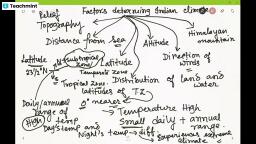 Teachmint
Factors determining Indian climate
Relief
Topography
Himalayan
mountain
Distance from Sea
Altitude
Latitude
Latitude
Direction of
winds
23½°N
Subtropical
Zone
Temperate Zone
Distribution of land and
water
Tropical Zone
latitudes of TZ
0° nearer
Daily/annual
range of
temp
High
Day's temp and
Night's temp → diff
Temperature High
Small daily + annual
range
Experiences extreme
climate